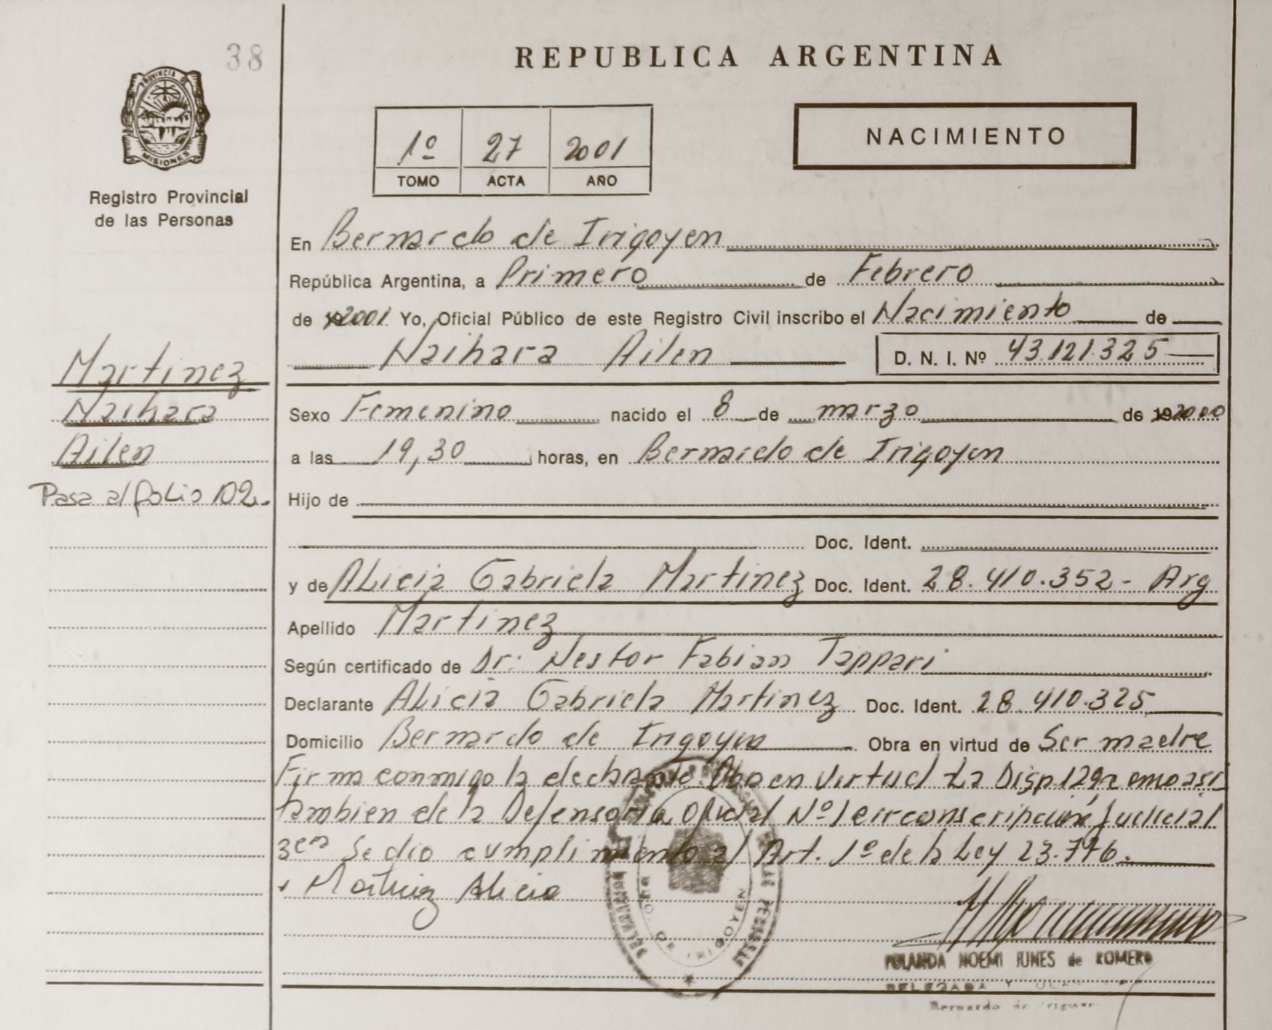 38
REPUBLICA ARGENTINA
PROVINCIA DE
MISIONES
1º 27 2001
TOMO ACTA AÑO
NACIMIENTO
Registro Provincial
de las Personas
En Bernardo de Irigoyen
República Argentina, a Primero de Febrero
de 2001 Yo, Oficial Público de este Registro Civil inscribo el Nacimiento de
Naihara Ailen D. N. I. Nº 43.121.325
Martinez
Naihara
Ailen
Pasa al folio 102.
Sexo Femenino nacido el 8 de marzo de 2000
a las 19,30 horas, en Bernardo de Irigoyen
Hijo de
Doc. Ident.
y de Alicia Gabriela Martinez Doc. Ident. 28.410.352- Arg
Apellido Martinez
Según certificado de Dr: Nestor Fabian Tappari
Declarante Alicia Gabriela Martinez Doc. Ident. 28.410.325
Domicilio Bernardo de Irigoyen Obra en virtud de Ser madre
Firma conmigo la declarante. en virtud La Disp
tambien de la Defensoria Oficial Nº1 circonscripción Judicial
3era Se dio cumplimiento al Art. 1º de la Ley 23.776.
Martinez Alicia
DE IRIGOYEN
YOLANDA NOEMI IUNES de ROMERO
DELEGADA
Bernardo de Irigoyen